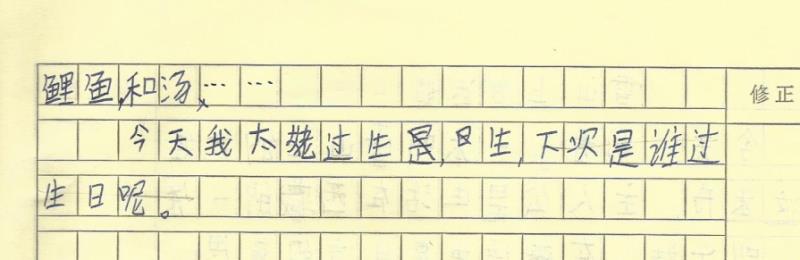 鲤鱼,和汤,……
今天我太姥过生是,日生,下次是谁过
生日呢。
修正